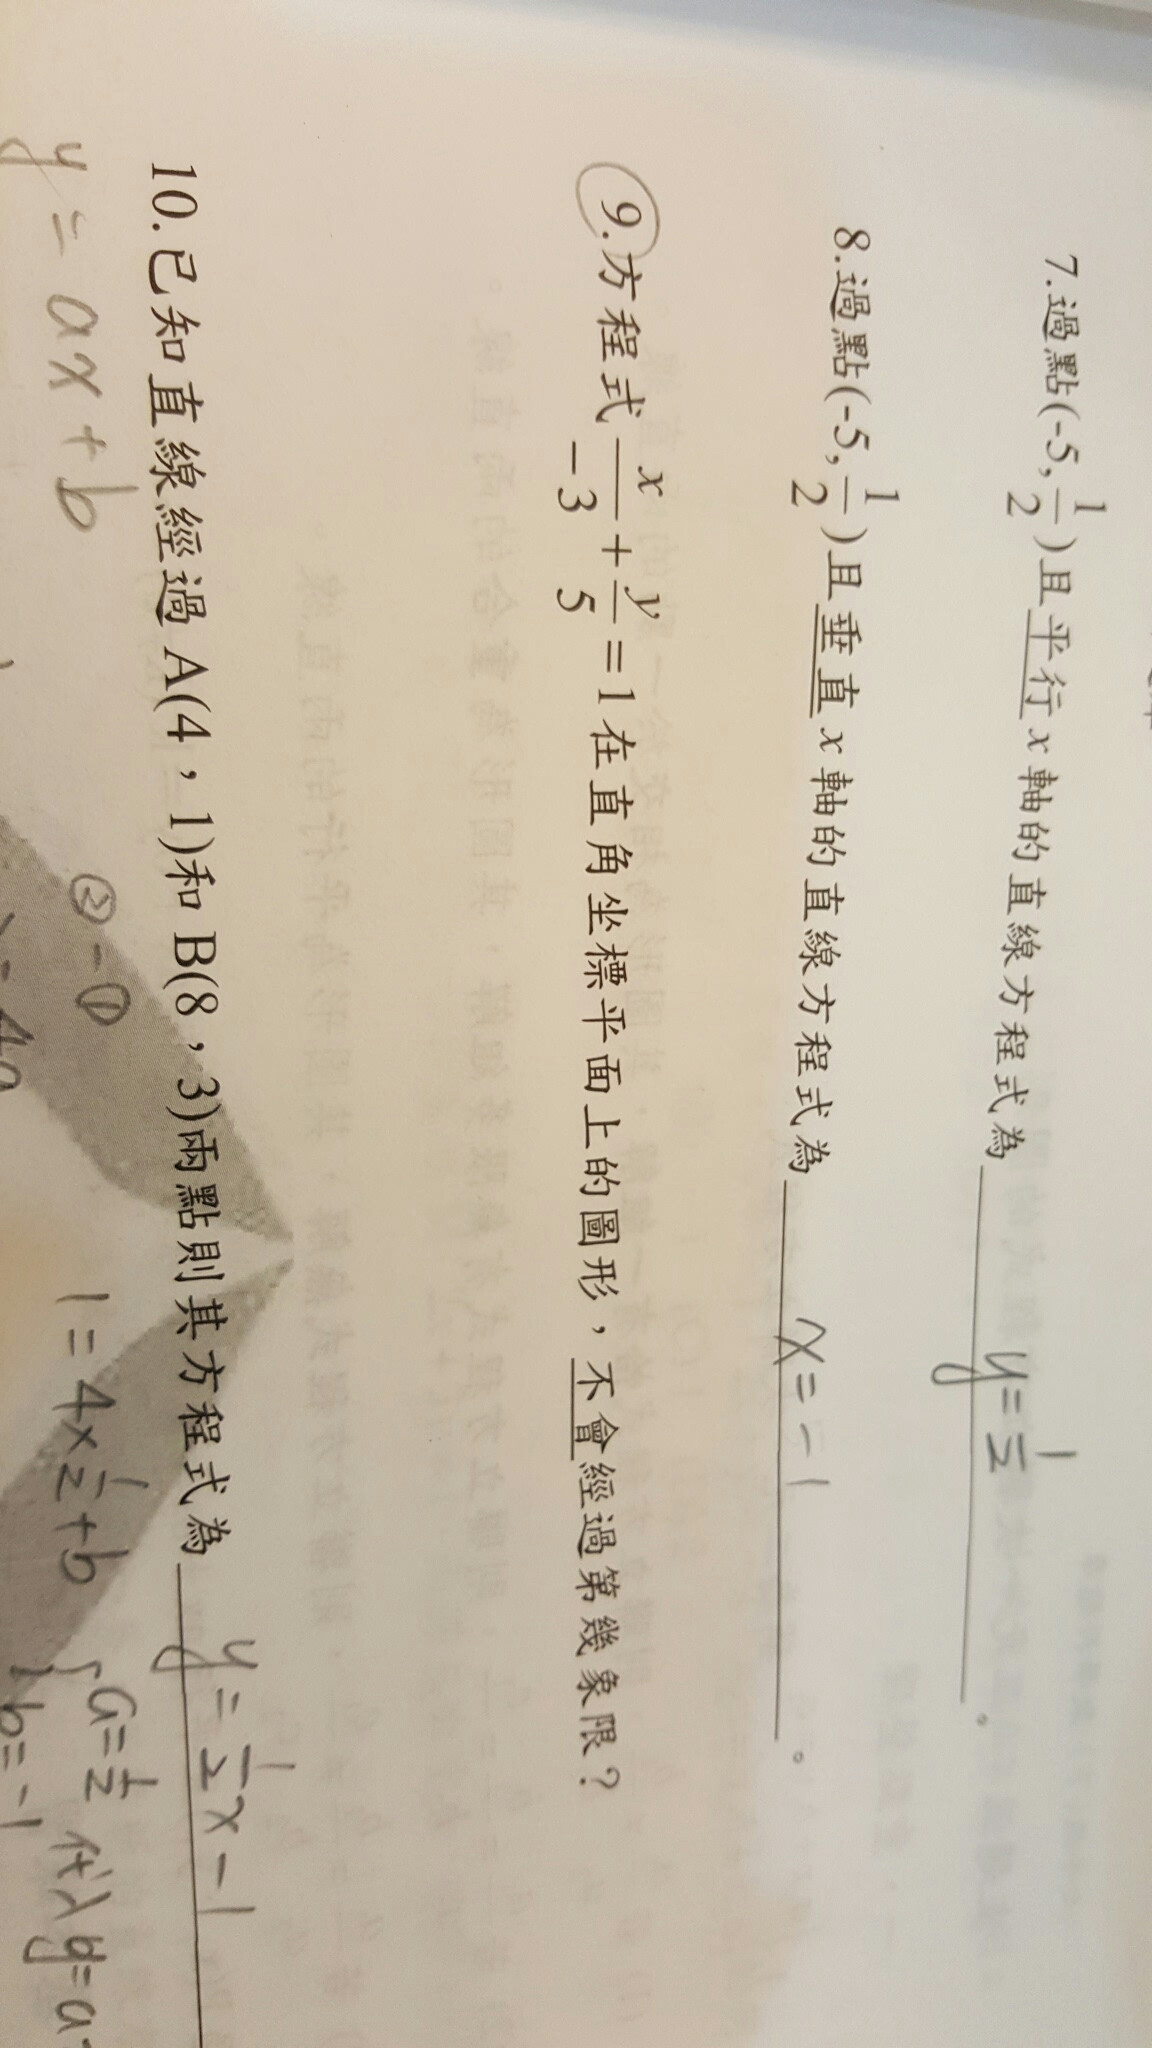 7.過點(-5,1/2)且平行x軸的直線方程式為 y=1/2 。
8.過點(-5,1/2)且垂直x軸的直線方程式為 x=-1 。
9.方程式 x/-3 + y/5 =1在直角坐標平面上的圖形，不會經過第幾象限？
10.已知直線經過A(4，1)和B(8，3)兩點則其方程式為 y=1/2x-1
y=ax+b ②-① 1=4×1/2+b a=1/2 代入y=a
b=-1